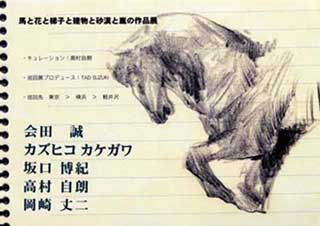 馬と花と梯子と建物と砂漠と嵐の作品展
・キュレーション：高村自朗
・巡回展プロデュース：TAD SUZUKI
・巡回先 東京 > 横浜 > 軽井沢
会田 誠
カズヒコ カケガワ
坂口 博紀
高村 自朗
岡崎 丈二